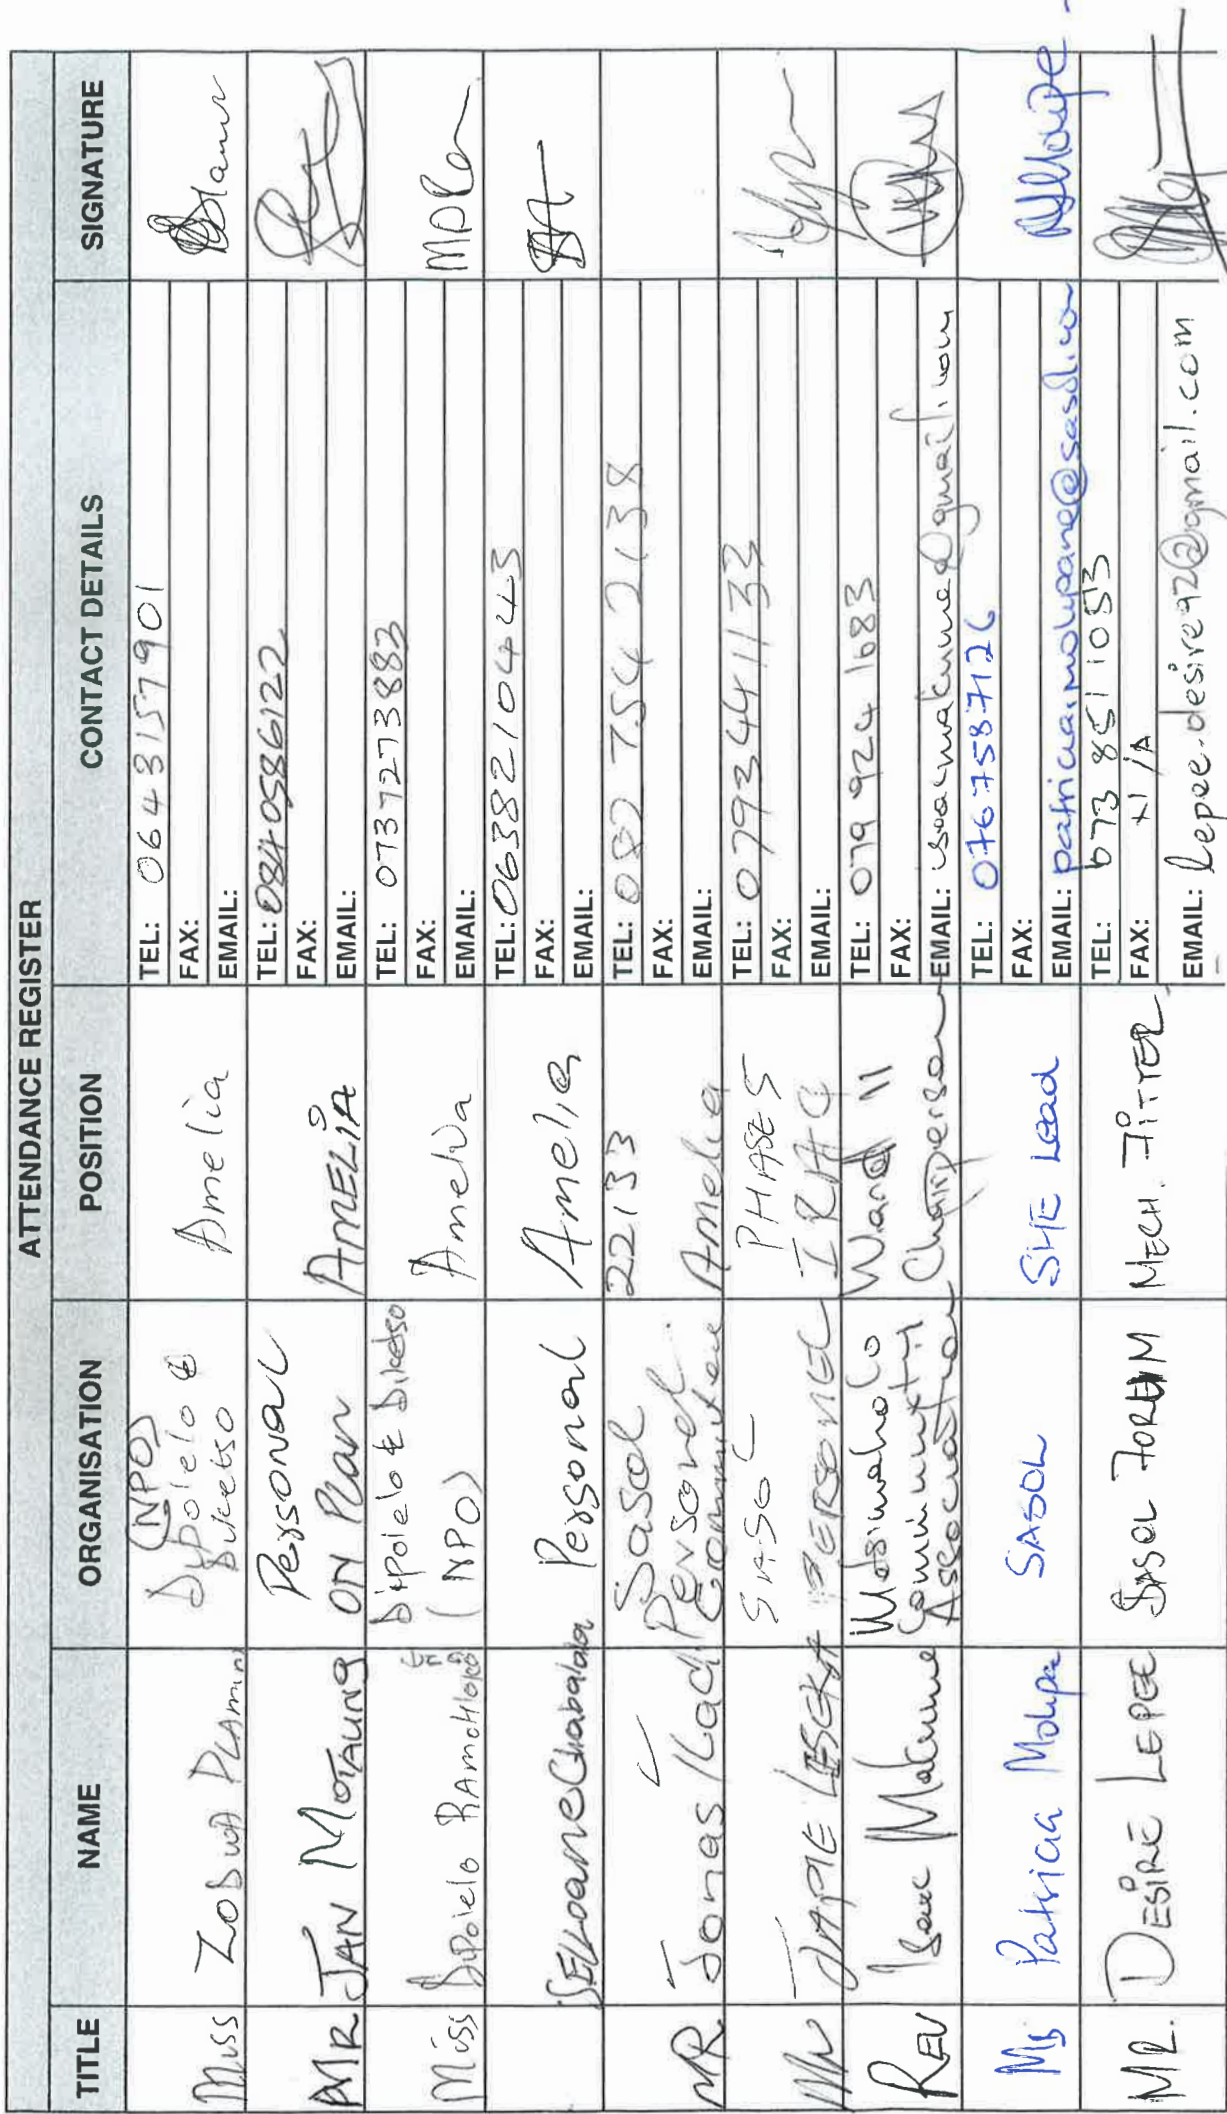 ATTENDANCE REGISTER
TITLE NAME ORGANISATION POSITION CONTACT DETAILS SIGNATURE
Miss Zodwa DLAmini (NPO) Dipolelo & Diketso Amelia TEL: 0643157901
FAX:
EMAIL:
MR JAN MOTAUNG Personal ON Plan AMELIA TEL: 0840586122
FAX:
EMAIL:
Miss Dipolelo RAmoHlokoane Dipolelo & Diketso (NPO) Amelia TEL: 0737273883
FAX:
EMAIL:
SELLoane Chabalala Personal Amelia TEL: 0638210443
FAX:
EMAIL:
MR Jonas Sasol Personel Committee 22133 Amelia TEL: 082 754 2138
FAX:
EMAIL:
Mr JAPIE SASOL PERSONEL PHASE 5 TEL: 0793441133
FAX:
EMAIL:
REV Isaac Makume Metsimaholo Community Association Ward 11 Chairperson TEL: 079 924 1683
FAX:
EMAIL: isaacmakume@gmail.com
Ms Patricia Molupe SASOL SHE Lead TEL: 0767587126
FAX:
EMAIL: patricia.molupane@sasol.com
MR. DESIRÉ LEPEE SASOL FORUM MECH. FITTER TEL: 073 851 1053
FAX: N/A
EMAIL: lepee.desire92@gmail.com